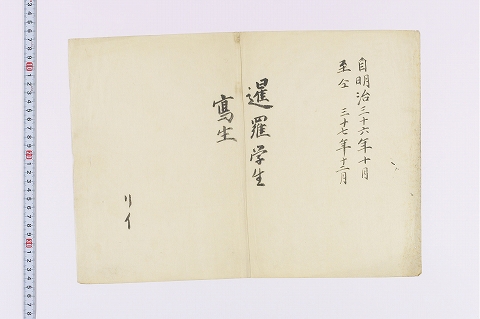 自明治三十六年十月
至仝 三十七年十二月
暹羅学生
寫生
リイ